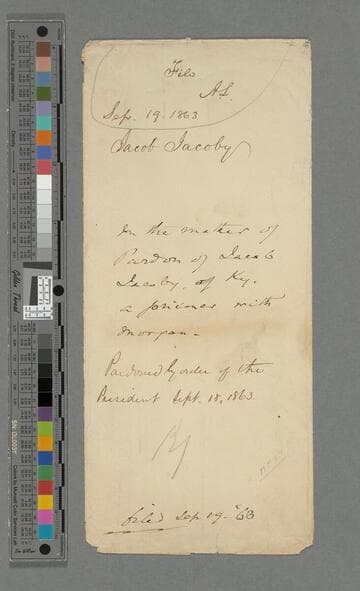 File
A.L.
Sep. 19. 1863
Jacob Jacoby
In the matter of
Pardon of Jacob
Jacoby, of Ky.
a prisoner with
Morgan-
Pardoned by order of the
President Sept. 18, 1863.
filed Sep 19-'63
Golden Thread